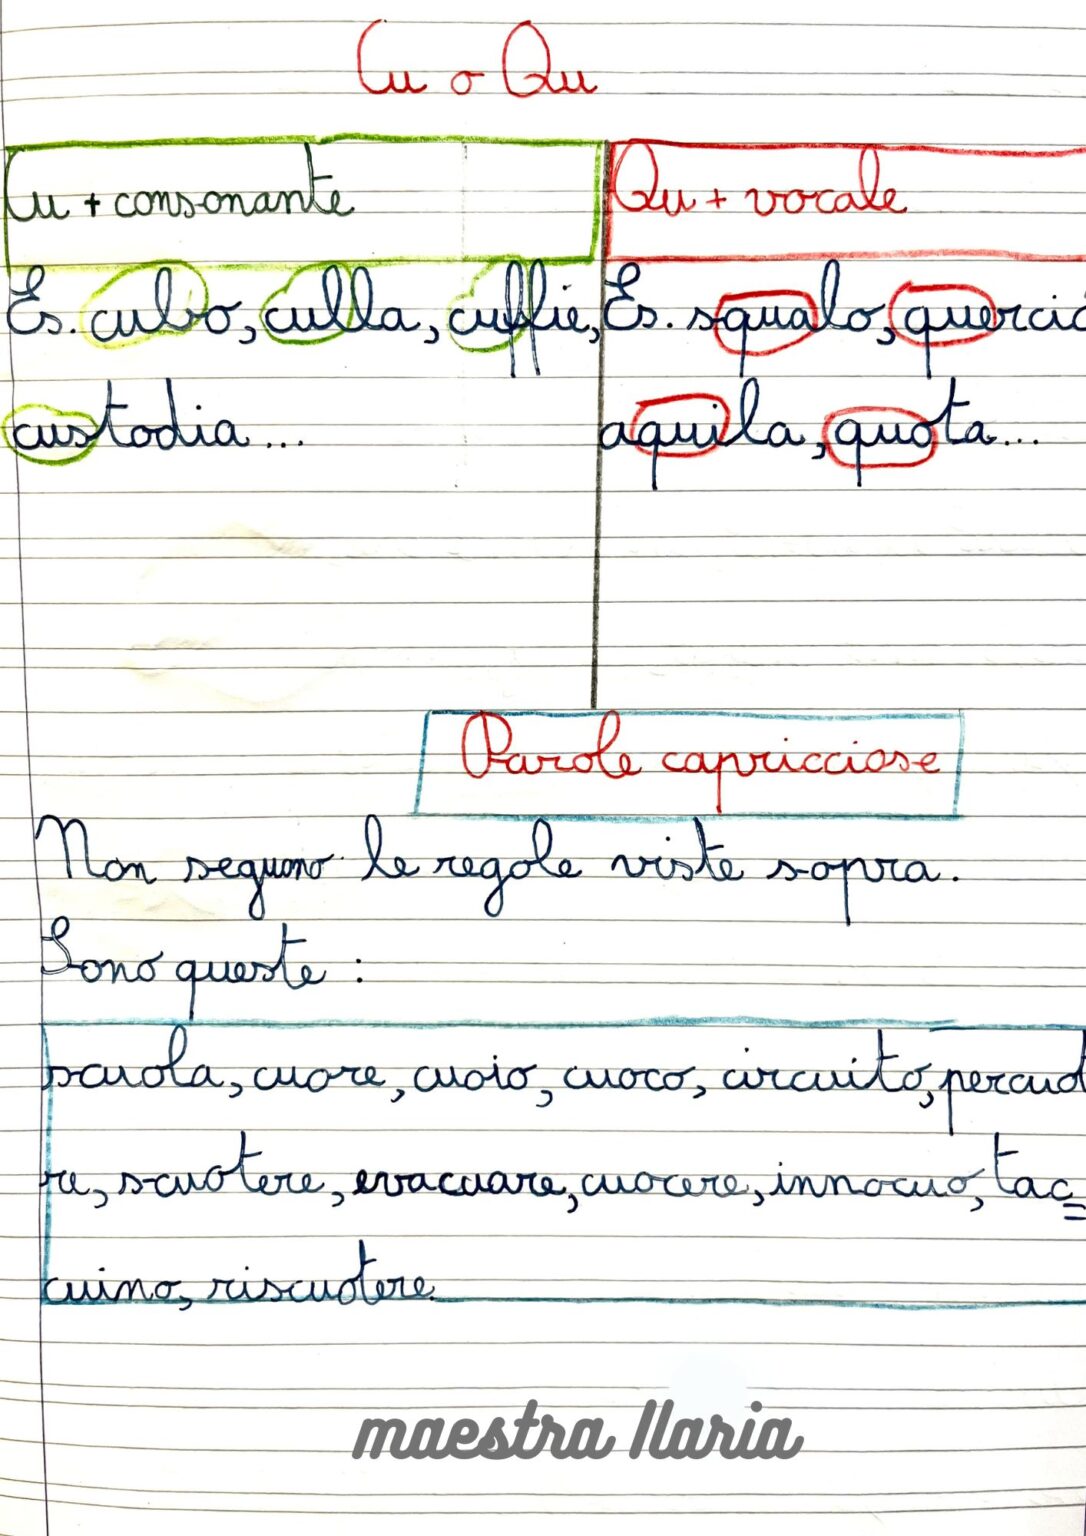 Cu o Qu
Cu + consonante
Es. cubo, culla, cuffie,
custodia...
Qu + vocale
Es. squalo, quercia
aquila, quota...
Parole capricciose
Non seguono le regole viste sopra.
Sono queste :
scuola, cuore, cuoio, cuoco, circuito, percuot
re, scuotere, evacuare, cuocere, innocuo, tac=
cuino, riscuotere.
maestra Ilaria